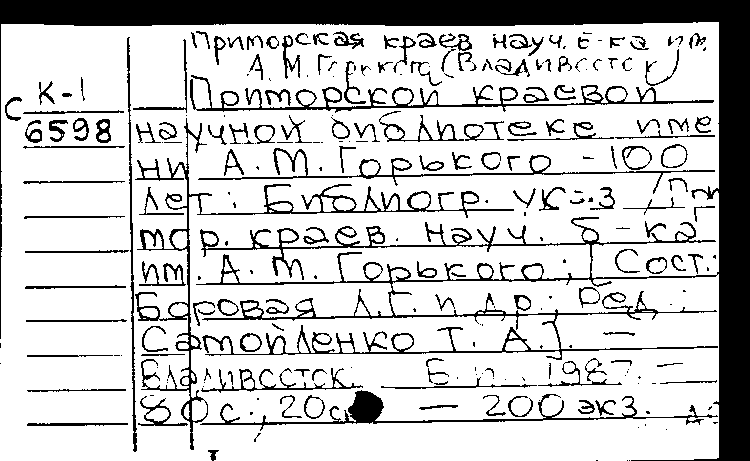 Приморская краев. науч. б-ка им.
А. М. Горького (Владивосток)
К-1
Приморской краевой
С
6598
научной библиотеке име
ни А. М. Горького - 100
лет: Библиогр. указ / При
мор. краев. науч. б-ка
им. А. М. Горького; [Сост.:
Боровая Л. Г. и др.; Ред.:
Самойленко Т. А.]. —
Владивосток: Б. и., 1987. —
80 с.; 20 с — 200 экз.